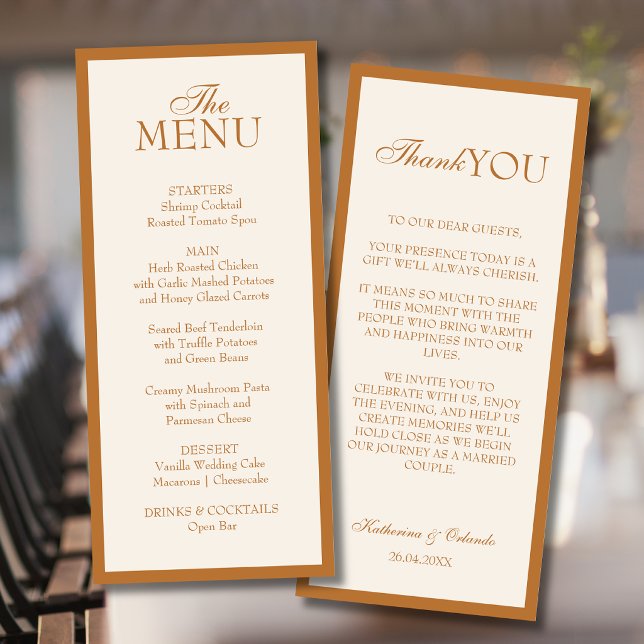 The
MENU
STARTERS
Shrimp Cocktail
Roasted Tomato Spou
MAIN
Herb Roasted Chicken
with Garlic Mashed Potatoes
and Honey Glazed Carrots
Seared Beef Tenderloin
with Truffle Potatoes
and Green Beans
Creamy Mushroom Pasta
with Spinach and
Parmesan Cheese
DESSERT
Vanilla Wedding Cake
Macarons | Cheesecake
DRINKS & COCKTAILS
Open Bar
Thank YOU
TO OUR DEAR GUESTS,
YOUR PRESENCE TODAY IS A
GIFT WE'LL ALWAYS CHERISH.
IT MEANS SO MUCH TO SHARE
THIS MOMENT WITH THE
PEOPLE WHO BRING WARMTH
AND HAPPINESS INTO OUR
LIVES.
WE INVITE YOU TO
CELEBRATE WITH US, ENJOY
THE EVENING, AND HELP US
CREATE MEMORIES WE'LL
HOLD CLOSE AS WE BEGIN
OUR JOURNEY AS A MARRIED
COUPLE.
Katherina & Orlando
26.04.20XX